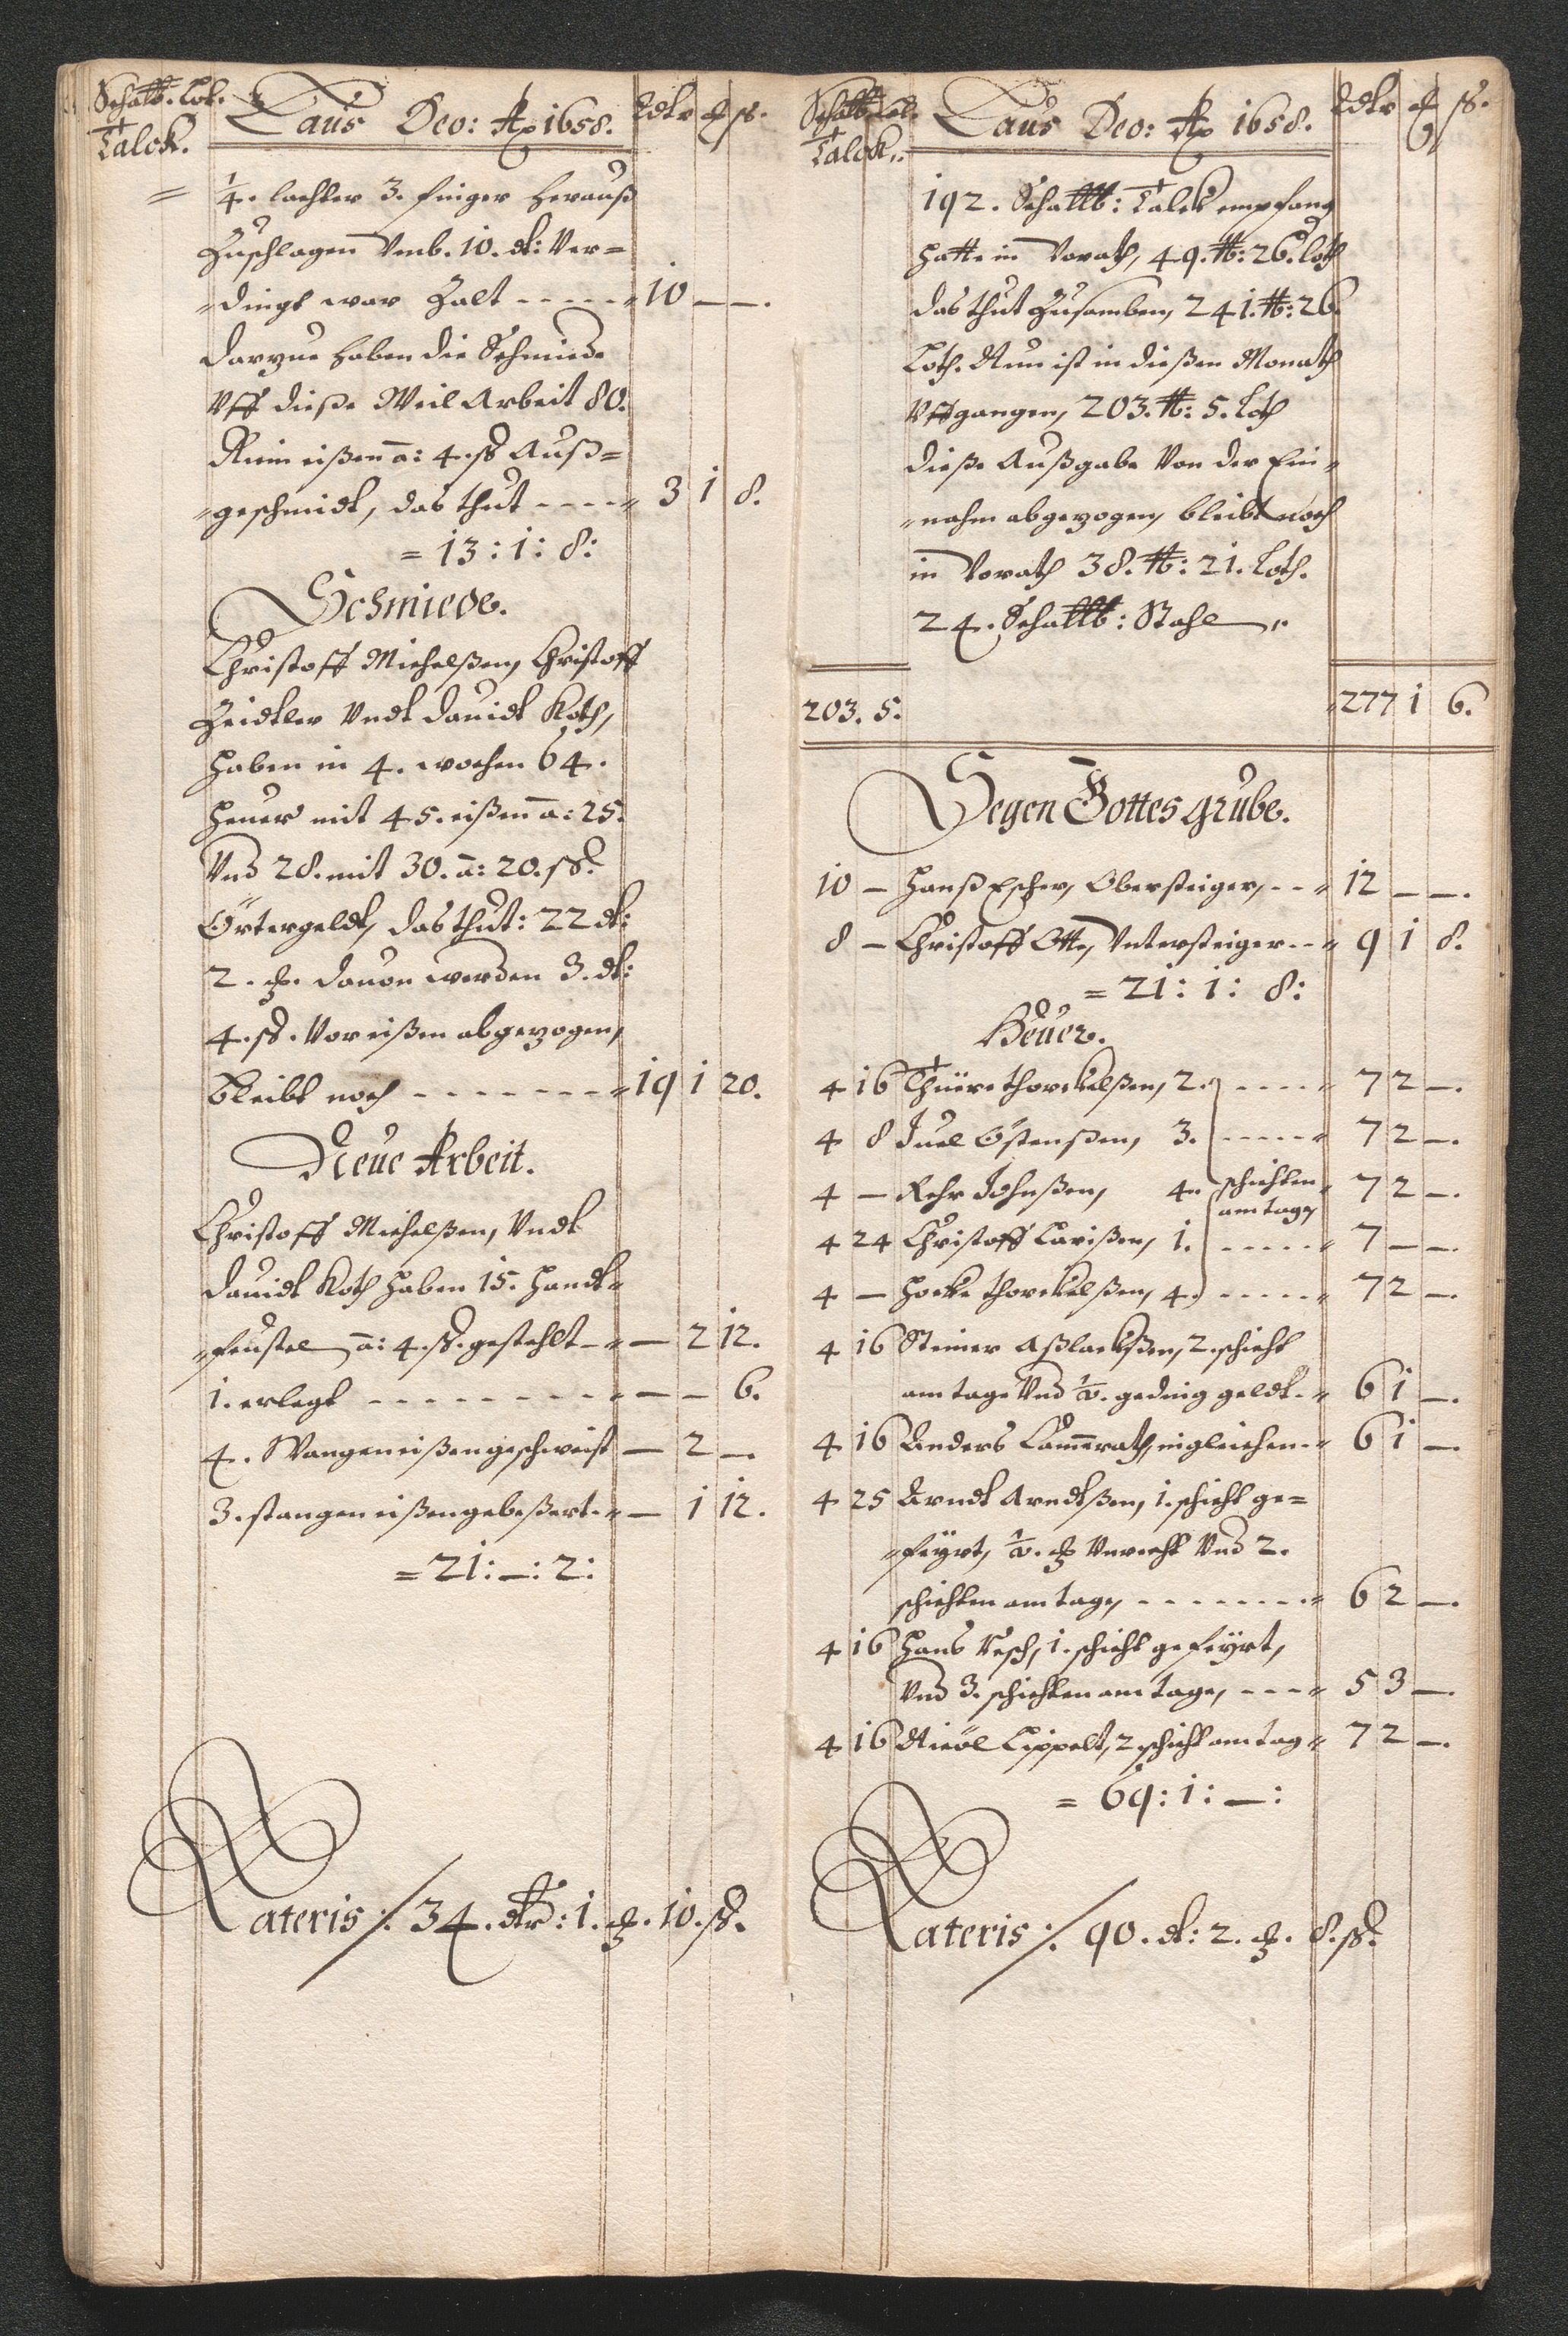 Schal℔. Lot.
Talck.
Laus Deo: Ao 1658.
Rdtr ƍ ß.
= 1/4. lachter 3. finger herauß
Zuschlagen Vmb. 10. dt: Ver=
=dingt war Zalt - - - - - = 10 — —.
Darzue haben die Schmiede
Vff dieße Weil Arbeit 80.
Rim eißen a: 4. ß Auß=
=geschmidt, das thut - - - - = 3 1 8.
= 13 : 1 : 8 :
Schmiede.
Christoff Michelßen, Christoff
Zeidtler Vndt Dauidt Koth,
haben in 4. wochen 64.
heuer mit 45. eißen a: 25.
Vnd 28. mit 30. a: 20. ß.
Örtergeldt, das thut: 22 dt:
2. ƍ. dauon werden 3. dt:
4. ß. Vor eißen abgezogen,
bleibt noch - - - - - - - = 19 1 20.
Neue Arbeit.
Christoff Michelßen, Vndt
Dauidt Koth haben 15. handt=
=feustel a: 4. ß. gestehlt - = — 2 12.
1. erlegt - - - - - - - - — — 6.
4. Wangeneißen geschweist — 2 —.
3. stangen eißen gebeßert - = — 1 12.
= 21 : — : 2 :
Lateris ⁒ 34. dtr: 1. ƍ. 10. ß.
Schal℔. Lot.
Talck.
Laus Deo: Ao 1658.
Rdtr ƍ ß.
192. Schal℔: Talck empfang
hatt in Vorath, 49. ℔: 26. loth
das thut Zusamben, 241. ℔: 26.
Loth. Nun ist in dießen Monath
Vffgangen, 203. ℔: 5. Loth
dieße Außgabe Von der Ein=
=nahm abgezogen, bleibt noch
in Vorath 38. ℔: 21. Loth.
24. Schal℔: Stahl
203. 5. = 277 1 6.
Segen Gottes grube.
10 — Hanß Escher, Obersteiger, - - = 12 — —.
8 — Christoff Otte, Vntersteiger - - = 9 1 8.
= 21 : 1 : 8 :
Heuer.
4 16 Thüre thorckelßen, 2. - - - - = 7 2 —.
4 8 Juel Östenßen, 3. - - - - - = 7 2 —.
4 — Rehr Johnßen, 4. schichten am tage, = 7 2 —.
4 24 Christoff Larißen, 1. - - - - - = 7 — —.
4 — Hocke thorckelßen, 4. - - - - - = 7 2 —.
4 16 Steiner Aßlackßen, 2. schicht
am tage Vnd 1/2. geding geldt - = 6 1 —.
4 16 Anders Camerath, ingleichen - = 6 1 —.
4 25 Arndt Arndtßen, 1. schicht ge=
=feyrt, 1/2. ƍ Vnrecht Vnd 2.
schichten am tage, - - - - - - - = 6 2 —.
4 16 Hans Resch, 1. schicht gefeyrt,
Vnd 3. schichten am tage, - - - = 5 3 —.
4 16 Nicöl Lippelt, 2. schicht am tag = 7 2 —.
= 69 : 1 : — :
Lateris ⁒ 90. dt: 2. ƍ. 8. ß.